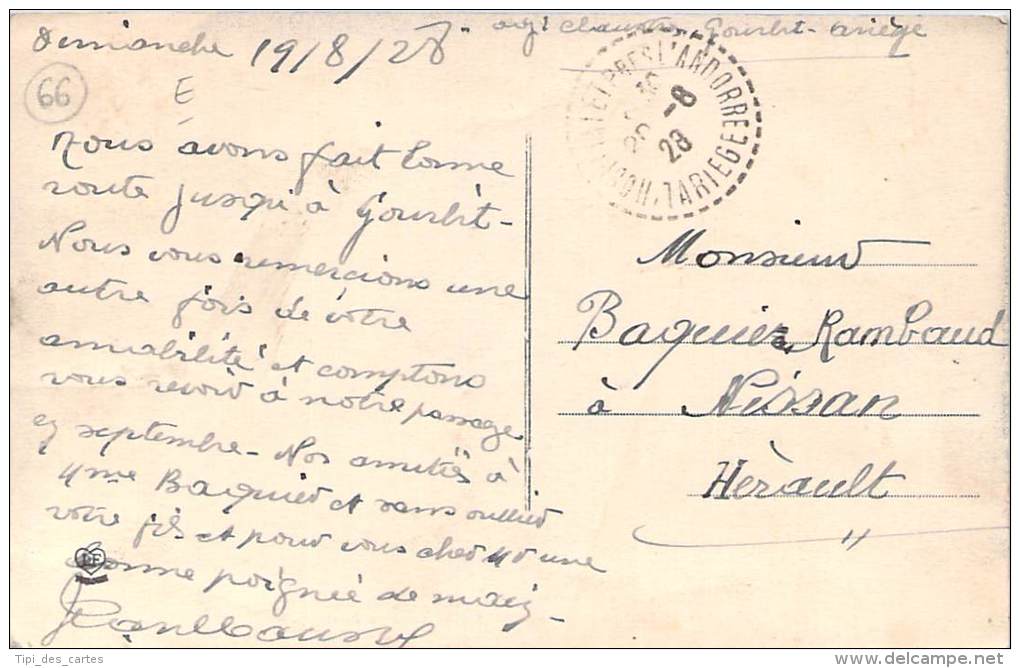 Dimanche 19/8/28
Gourbit - Ariège
66
L'HOSPITALET PRES L'ANDORRE
-8
28
ARIEGE
Nous avons fait bonne
route jusqu'à Gourbit -
Nous vous remerçions une
autre fois de votre
amabilité et comptons
vous revoir à notre passage
en septembre - Nos amitiés à
Mme Baquier et sans oublier
votre fils et pour vous cher Mr une
bonne poignée de main -
Monsieur
Baquier Rambaud
à Nissan
Hérault
Tipi_des_cartes
delcampe.net